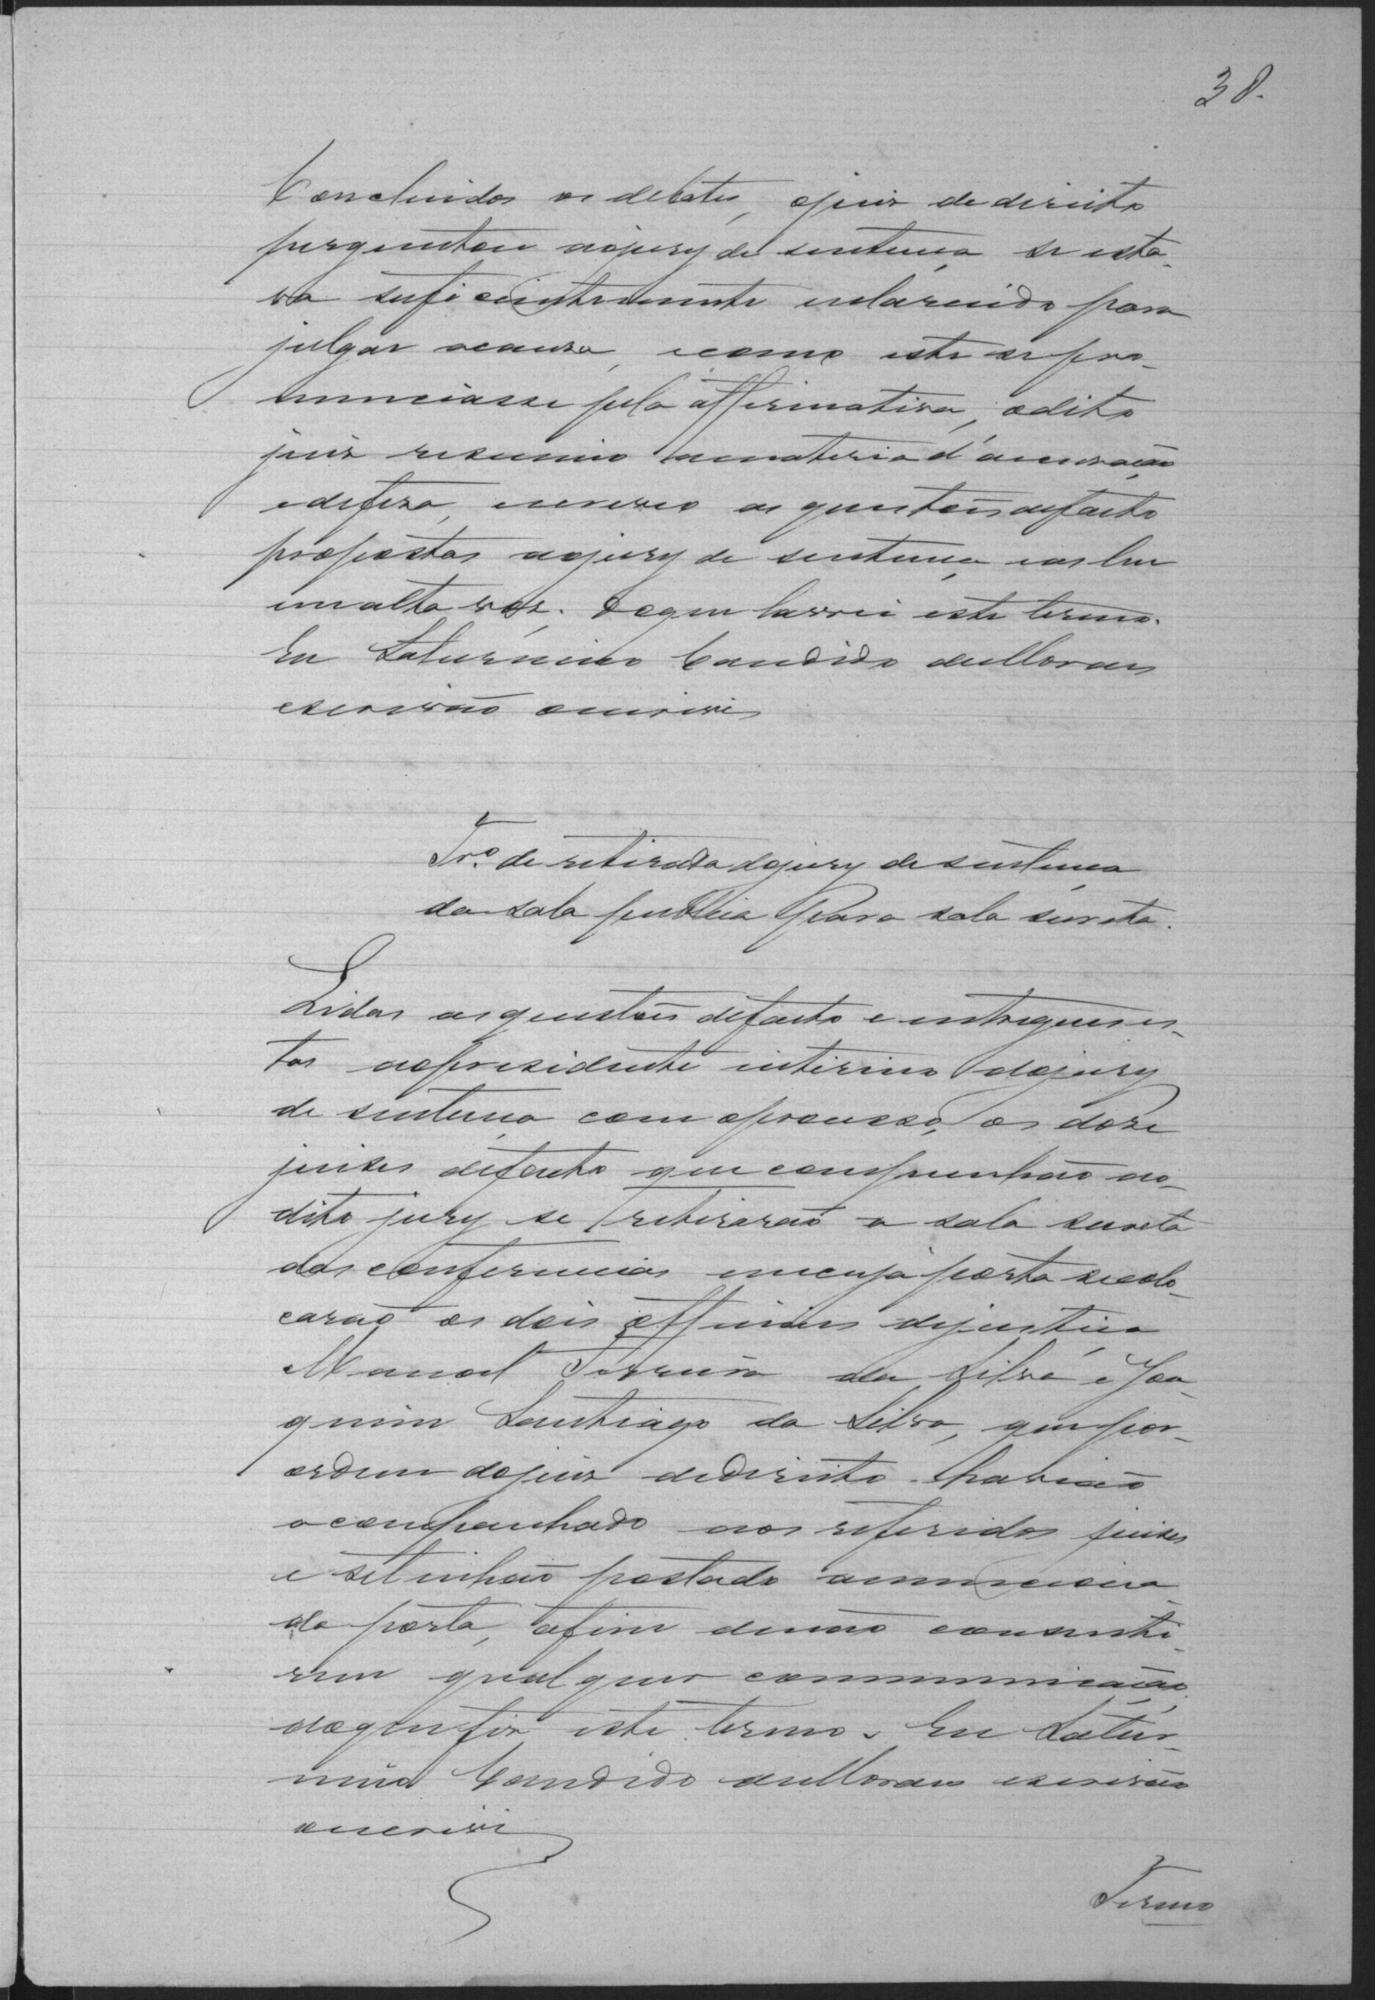 38.
Concluidos os debates, o juiz de direito
perguntou ao jury de sentença se esta-
va suficientemente esclarecido para
julgar a causa, e como este se pro-
nunciasse pela affirmativa, o dito
juiz resumio a materia d'accusação
e defeza, escreveo as questões de facto
propostas ao jury de sentença e as leu
em alta voz. Do que lavrei este termo.
Eu Saturnino Candido de Moraes
escrivão o escrevi
Tr.º de retirada do jury de sentença
da sala publica para sala secreta.
Lidas as questões de facto e entregues es-
tas ao presidente interino do jury
de sentença com o processo, os doze
juises de facto que compunhão ao
dito jury se retirarão a sala secreta
das conferencias em cuja porta se colo-
carão os dois officiaes de justiça
Manoel Ferreira da Silva e Joa-
quim Santiago da Silva, que por
ordem do juiz de direito havião
acompanhado aos referidos juises
e se tinhão postado
da porta, afim de não consenti-
rem qualquer communicação,
do que fiz este termo. Eu Satur-
nino Candido de Moraes escrivão
o escrevi
Termo